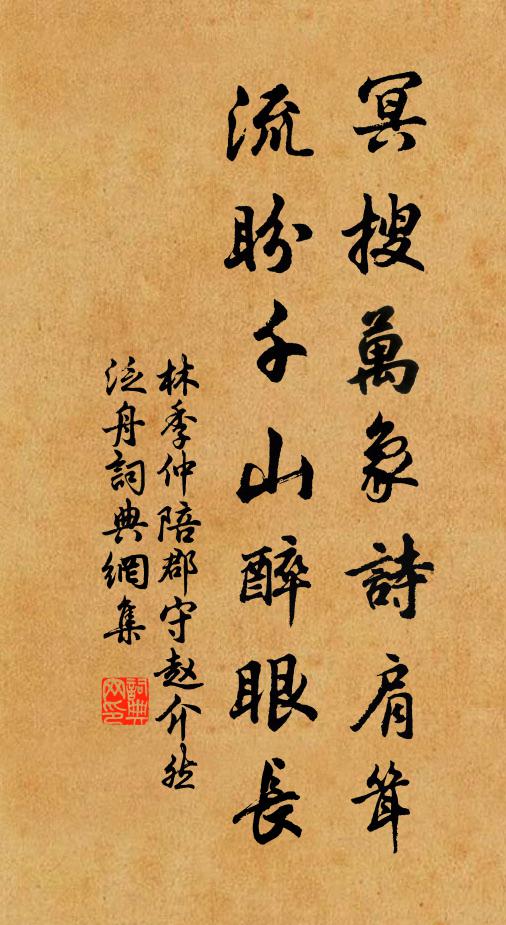 冥搜萬象詩肩耸
流盼千山醉眼長
林季仲陪郡守赵介然
泛舟詞典網集
詞典
网印